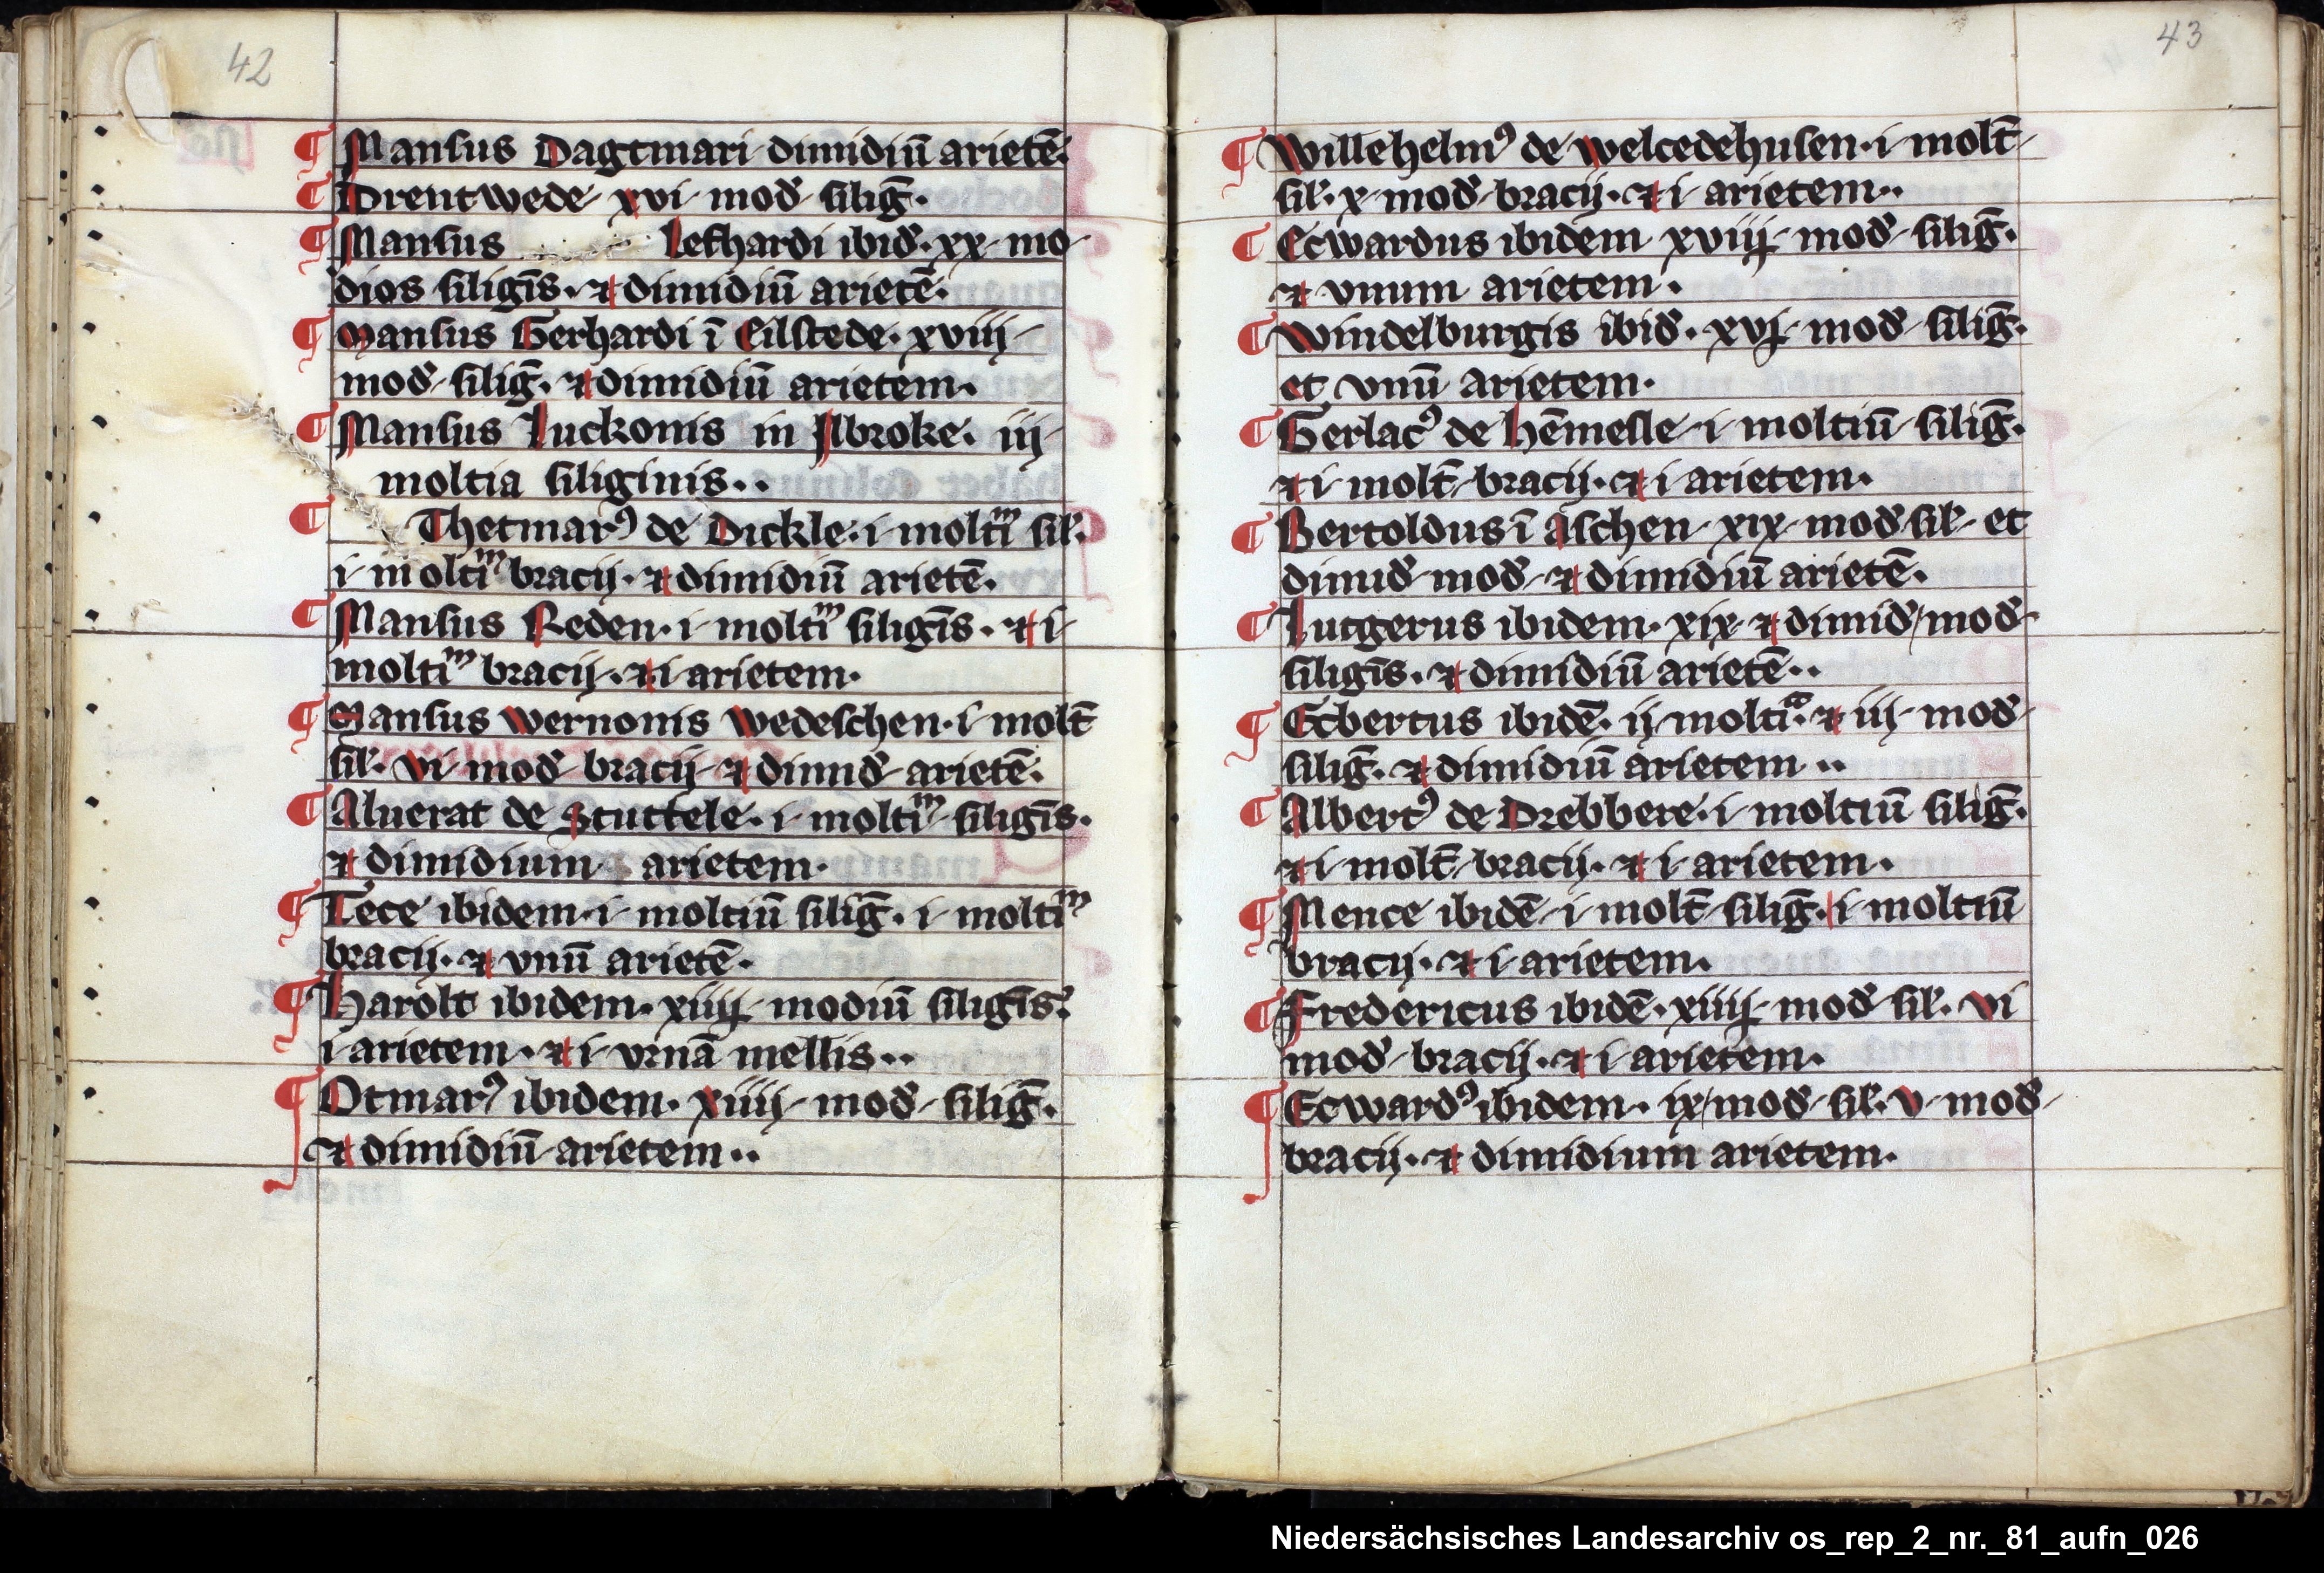 42
¶ Mansus Dagtmari dimidiū arietē.
¶ Drentwede xvi mod̄ siliḡ.
¶ Mansus Lefhardi ibid̄. xx mo
dios siligīs. ⁊ dimidiū arietē.
¶ Mansus Gerhardi ī Eilstede. xviij
mod̄ siliḡ. ⁊ dimidiū arietem.
¶ Mansus Luckonis in Abroke. iij
moltia siliginis..
¶ Thetmarꝰ de Dickle. i moltiᵐ sil̄.
i moltiᵐ bracij. ⁊ dimidiū arietē.
¶ Mansus Reden. i moltiᵐ siligīs. ⁊ i
moltiᵐ bracij. ⁊ i arietem.
¶ Mansus Wernonis Wedeschen. i molt̄
sil̄. vi mod̄ bracij ⁊ dimid̄ arietē.
¶ Aluerat de Stuttele. i moltiᵐ siligīs.
⁊ dimidium arietem.
¶ Tece ibidem. i moltiū siliḡ. i moltiᵐ
bracij. ⁊ vnū arietē.
¶ Harolt ibidem. xiiij modiū siligīs.
i arietem. ⁊ i vrnā mellis..
¶ Otmarꝰ ibidem. xiiij mod̄ siliḡ.
⁊ dimidiū arietem..
43
¶ Willehelmꝰ de Welcedehusen. i molt̄
sil̄. x mod̄ bracij. ⁊ i arietem..
¶ Ecwardus ibidem xviij mod̄ siliḡ.
⁊ vnum arietem.
¶ Windelburgis ibid̄. xvj mod̄ siliḡ.
et vnū arietem.
¶ Gerlacꝰ de Hēmesle i moltiū siliḡ.
⁊ i molt̄ bracij. ⁊ i arietem.
¶ Bertoldus ī Aschen xix mod̄ sil̄ et
dimid̄ mod̄ ⁊ dimidiū arietē.
¶ Lutgerus ibidem. xix ⁊ dimid̄ mod̄
siligīs. ⁊ dimidiū arietē..
¶ Ecbertus ibidē. ij moltiᵃ. ⁊ iij mod̄
siliḡ. ⁊ dimidiū arietem..
¶ Albertꝰ de Drebbere. i moltiū siliḡ.
⁊ i molt̄ bracij. ⁊ i arietem.
¶ Mence ibidē i molt̄ siliḡ. i moltiū
bracij. ⁊ i arietem.
¶ Fredericus ibidē. xiiij mod̄ sil̄. vi
mod̄ bracij. ⁊ i arietem.
¶ Ecwardꝰ ibidem. ix mod̄ sil̄. v mod̄
bracij. ⁊ dimidium arietem.
Niedersächsisches Landesarchiv os_rep_2_nr._81_aufn_026